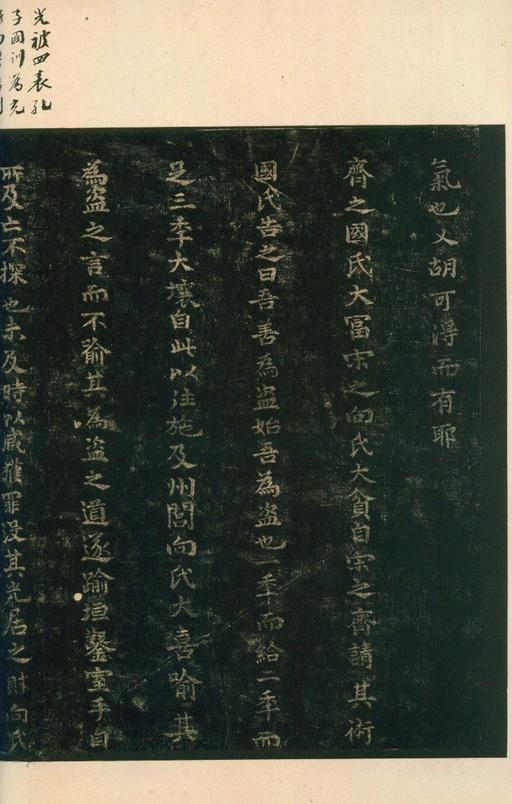 氣也乂胡可淂而有耶
齊之國氏大冨宋之向氏大貧自宋之齊請其術
國氏告之曰吾善為盜始吾為盜也一秊而給二秊而
足三秊大壤自此以往施及州閭向氏大喜喻其
為盜之言而不喻其為盜之道遂踰垣鑿室手自
所及亡不探也未及時以臧獲罪没其先居之財向氏
光被四表孔
子國訓為充